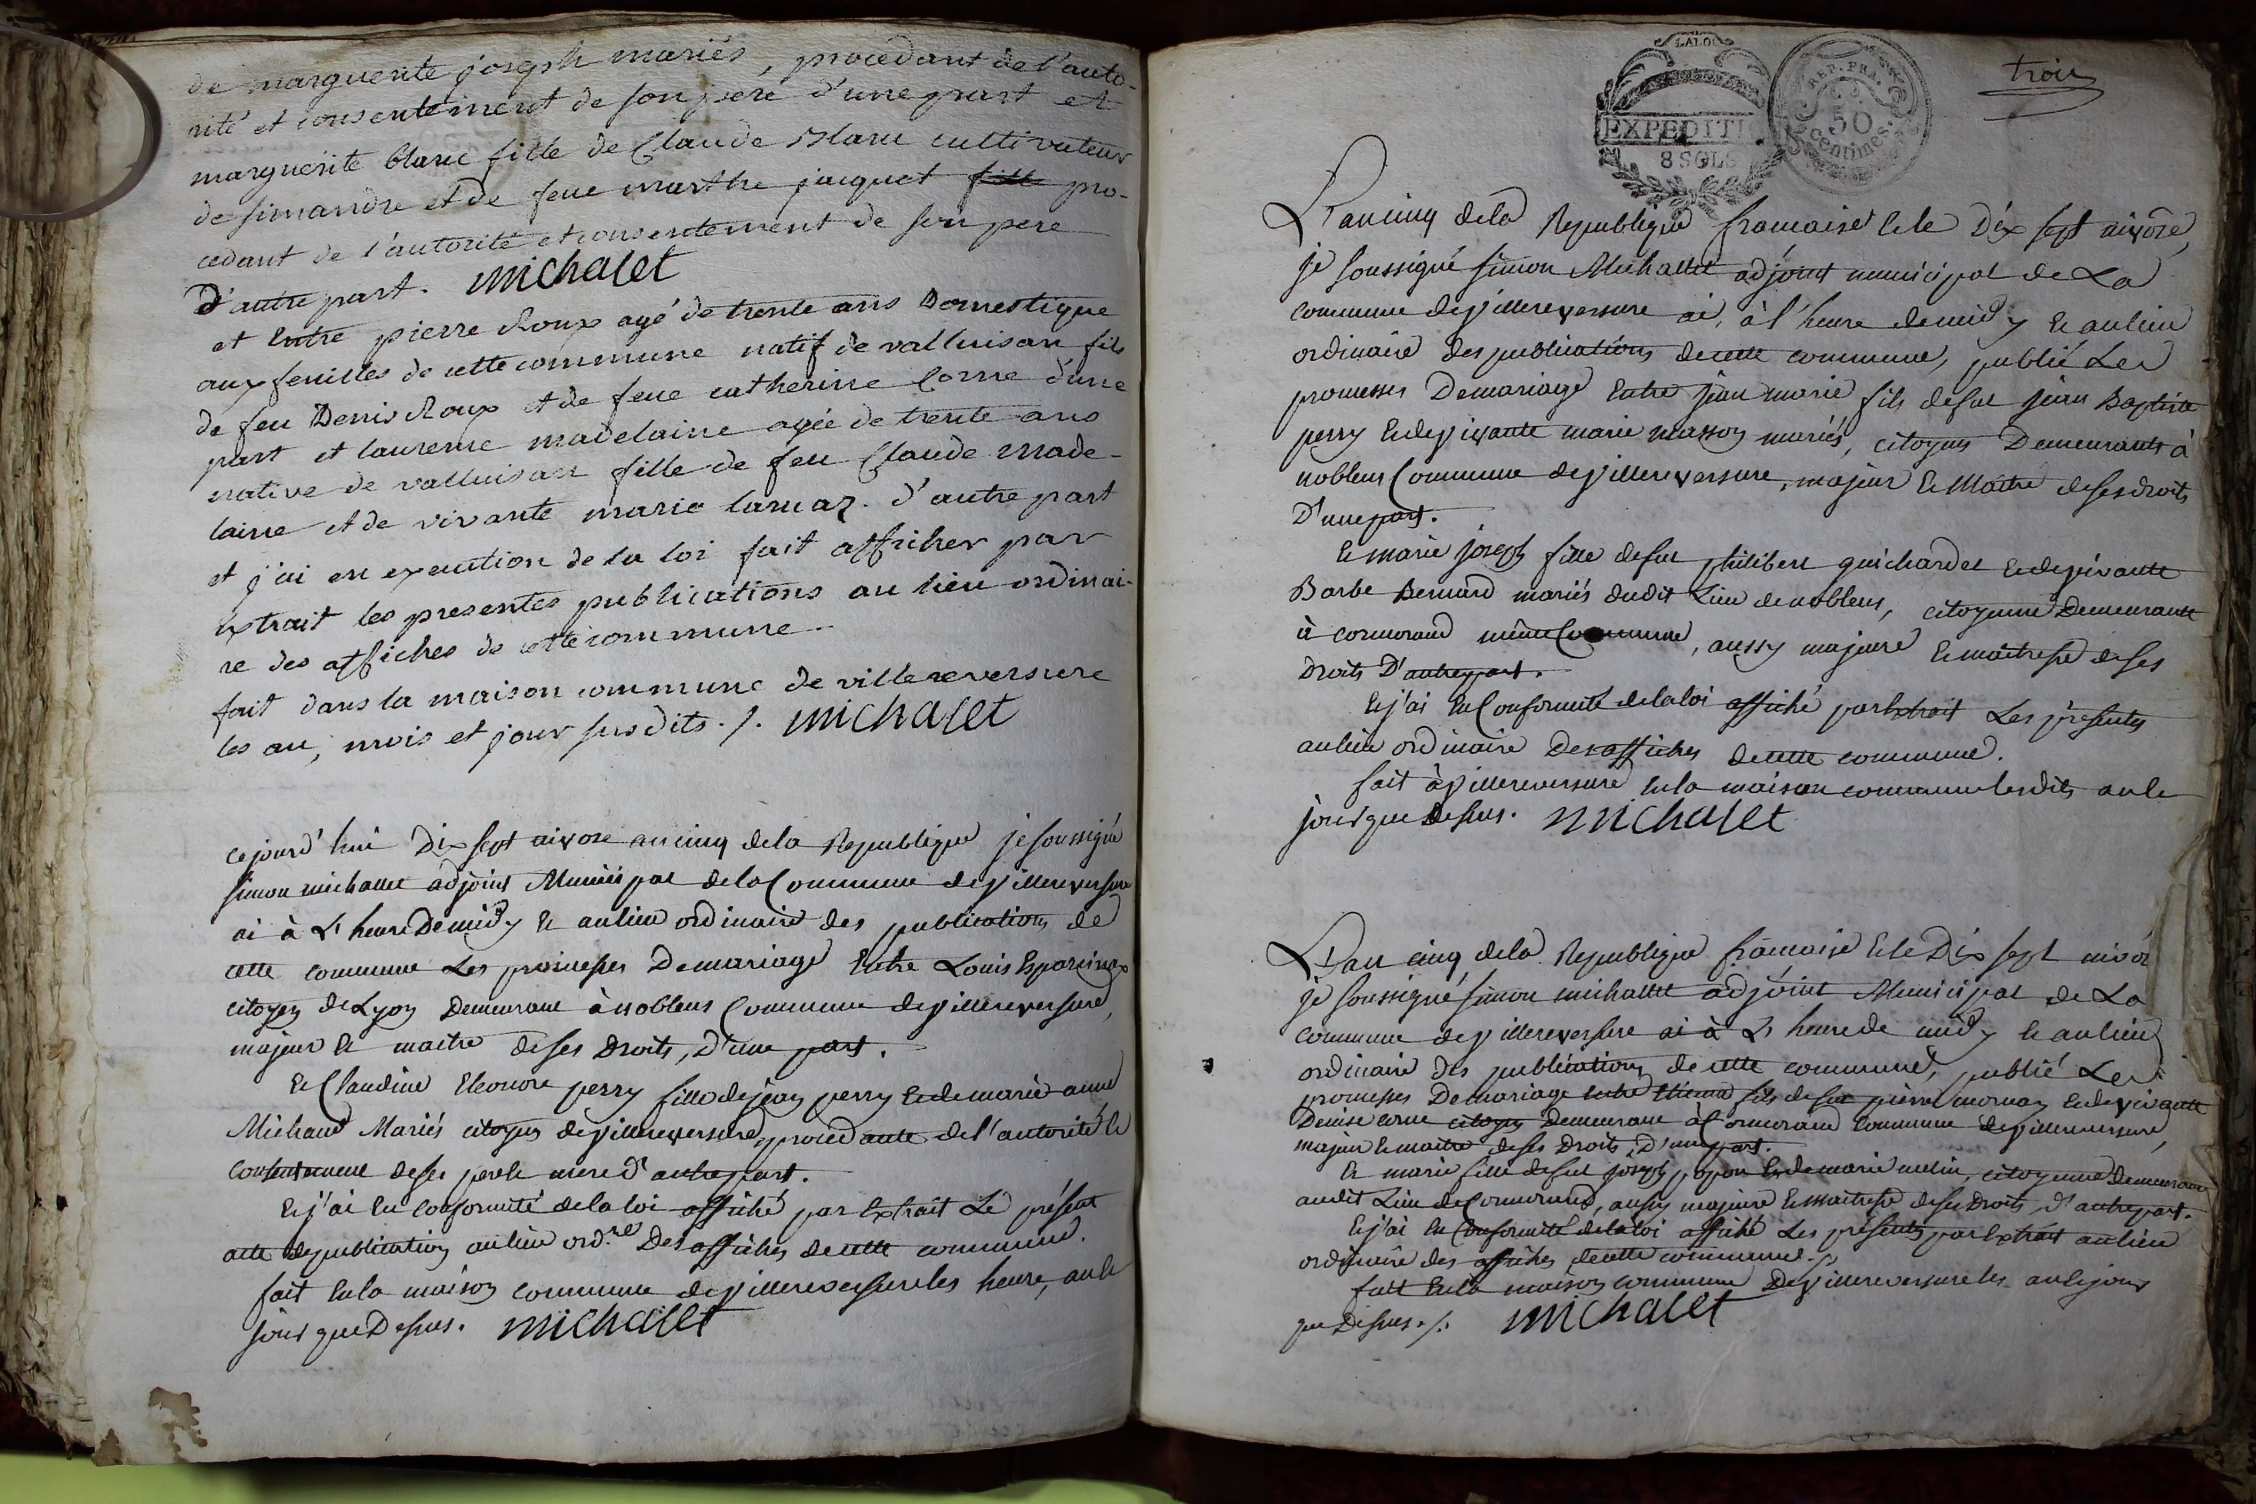 de marguerite joseph mariés, procedant de l'auto-
rité et consentement de son pere d'une part et
marguerite blanc fille de Claude Blanc cultivateur
de simandre et de feue marthe jacquet fille pro-
cedant de l'autorité et consentement de son pere
d'autre part. michalet
et Entre pierre Roux agé de trente ans Domestique
aux feuilles de cette commune natif de valluisan fils
de feu Denis Roux et de feue catherine Corne d'une
part et laurence madelaine agée de trente ans
native de valluisan fille de feu Claude made-
laine et de vivante marie lamaz. d'autre part
et j'ai en execution de la loi fait afficher par
Extrait les presentes publications au lieu ordinai-
re des affiches de cette commune.
fait dans la maison commune de villereversure
les an, mois et jour susdits ./. michalet
cejourd'hui Dix sept nivose an cinq de la Republique je soussigné
simon michallet adjoint Municipal de la Commune de villereversure
ai à L'heure De midy & au lieu ordinaire des publications de
cette commune Les promesses De mariage Entre Louis
citoyen de Lyon Demeurant à noblens Commune de villereversure,
majeur & maitre de ses Droits, d'une part.
& Claudine Eleonore perry fille de jean perry & de marie anne
Michaud Mariés citoyens de villereversure, procedante de l'autorité &
Consentement de ses pere & mere d'autre part.
& j'ai En Conformité de la loi affiché par Extrait Le présent
acte de publication au lieu ord.re Des affiches de cette commune.
fait En la maison commune de villereversure les heure, an &
jour que Dessus. michalet
trois
LALOI
EXPEDITI
8 SOLS
REP. FRA.
50
Centimes.
L'an cinq de la Republique francaise & le Dix sept nivose,
je soussigné simon Michallet adjoint municipal de La
commune de villereversure ai, à l'heure de midy & au lieu
ordinaire des publications de cette commune, publié Les
promesses De mariage Entre jean marie fils de feu jean Baptiste
perry & de vivante marie masson mariés, citoyens Demeurants à
noblens Commune de villereversure, majeur & Maitre de ses droits
D'une part.
& marie joseph fille de feu philibert guichardet & de vivante
Barbe Bernard mariés dudit Lieu de noblens, citoyenne Demeurante
à cormorand même Commune, aussy majeure & maitresse de ses
Droits D'autre part.
& j'ai En Conformité de la loi affiché par Extrait Les présentes
au lieu ordinaire Des affiches de cette commune.
fait à villereversure En la maison commune lesdits an &
jour que Dessus. michalet
L'an cinq de la Republique francaise & le Dix sept nivos
je soussigné simon michallet adjoint Municipal de La
commune de villereversure ai à L'heure de midy & au lieu
ordinaire des publications de cette commune, publié Les
promesses De mariage Entre Etienne fils de feu pierre mornay & de vivante
Denise corne citoyen Demeurant à Cormorand Commune de villereversure,
majeur & maitre de ses Droits, D'une part.
& marie fille de feu joseph & de marie citoyenne Demeurante
audit Lieu de Cormorand, aussy majeure & maitresse de ses Droits, d'autre part.
& j'ai En Conformité de la loi affiché Les présentes par Extrait au lieu
ordinaire des affiches de cette commune ./.
fait En la maison commune De villereversure les an & jour
que Dessus ./. michalet